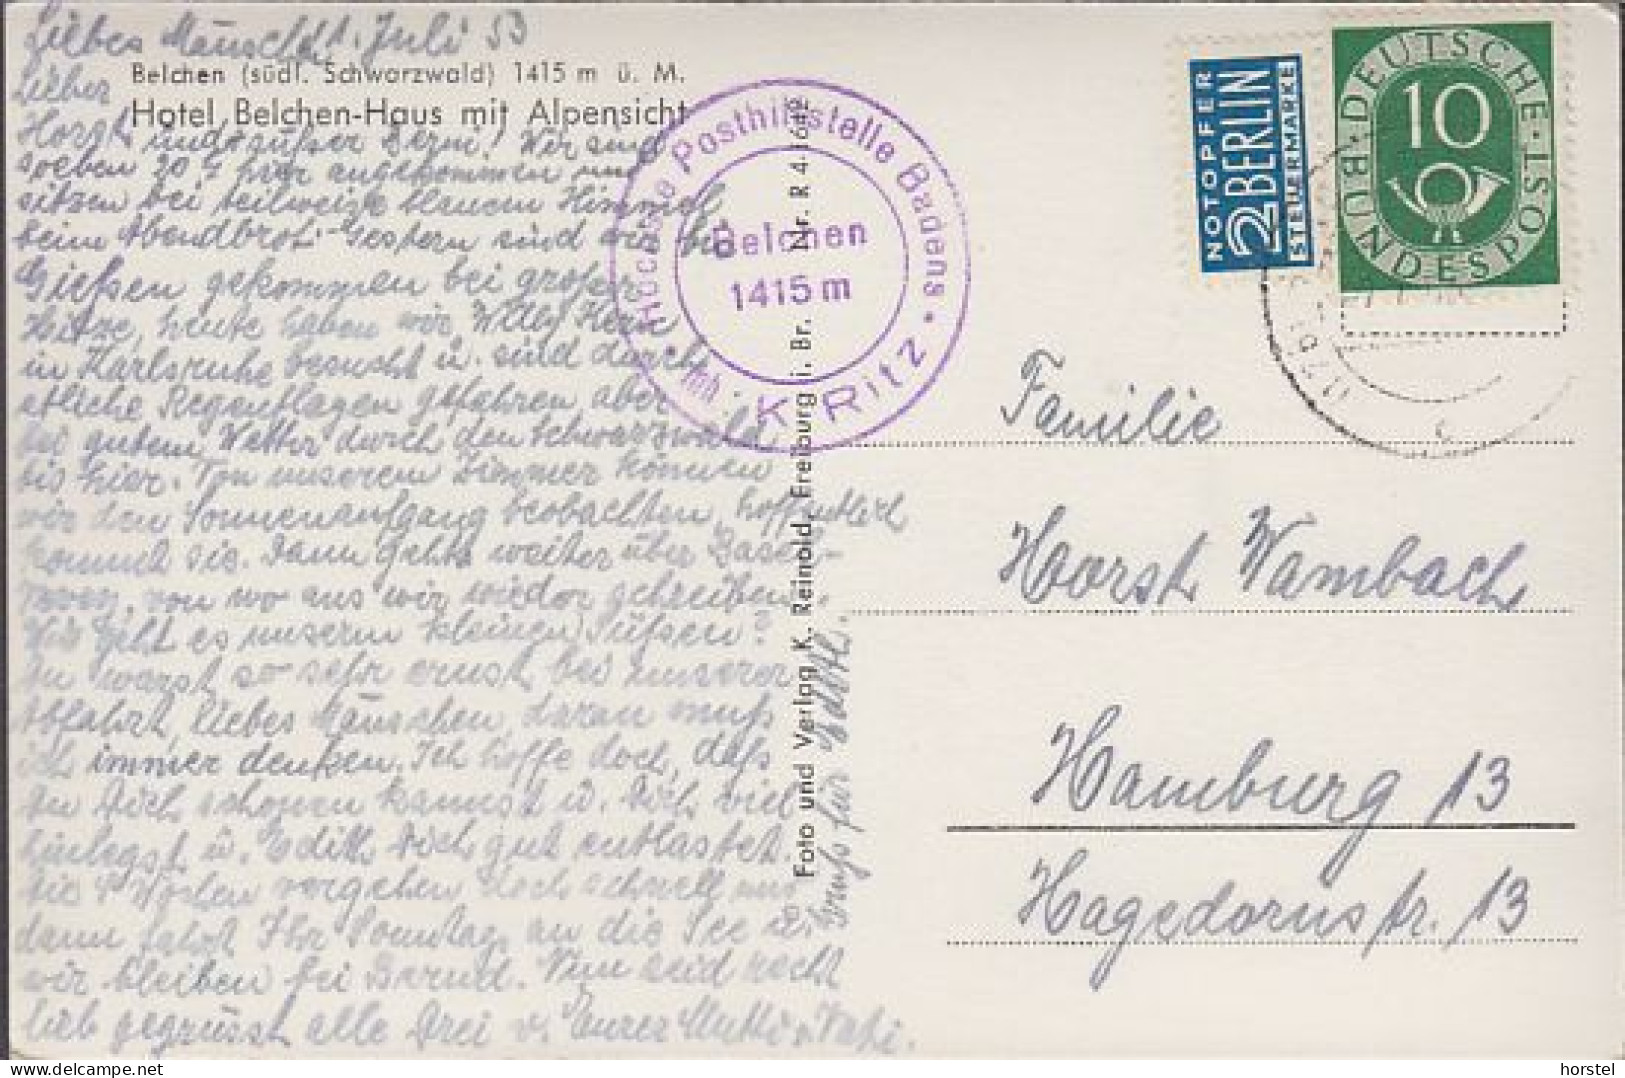 Liebes Mäuschen! 1. Juli 53
Lieber
Belchen (südl. Schwarzwald) 1415 m ü. M.
Hotel Belchen-Haus mit Alpensicht
Horst und süßer Bernd! Wir sind
soeben 20 hier angekommen und
sitzen bei teilweise blauem Himmel
beim Abendbrot. Gestern sind wir bis
Gießen gekommen bei großer
Hitze, heute haben wir Willy Kern
in Karlsruhe besucht u. sind durch
etliche Regenflagen gefahren aber
bei gutem Wetter durch den Schwarzwald
bis hier. Von unserem Zimmer können
wir den Sonnenaufgang beobachten, hoffentlich
kommt sie. Dann gehts weiter über
von wo aus wir wieder schreiben.
Wie geht es unserm kleinen Süßen?
Du warst so sehr ernst bei unserer
Abfahrt, liebes Mäuschen, daran muß
ich immer denken. Ich hoffe doch, daß
Du Dich schonen kannst u. Dich viel
hinlegst u. Edith Dich gut entlastet.
Die Wochen vergehen doch schnell und
dann fahrt Ihr Sonntag an die See u.
wir bleiben bei Bernd. Nun seid recht
lieb gegrüsst alle Drei v. Eurer Mutti u. Vati.
Gruß für Edith.
Höchste Posthilfsstelle Badens •
Belchen
1415 m
Inh. K. Ritz
Foto und Verlag K. Reinold, Freiburg i. Br. Nr. R 4
NOTOPFER
2 BERLIN
STEUERMARKE
DEUTSCHE · BUNDESPOST ·
10
Familie
Horst Wambach
Hamburg 13
Hagedornstr. 13
horstel
delcampe.net